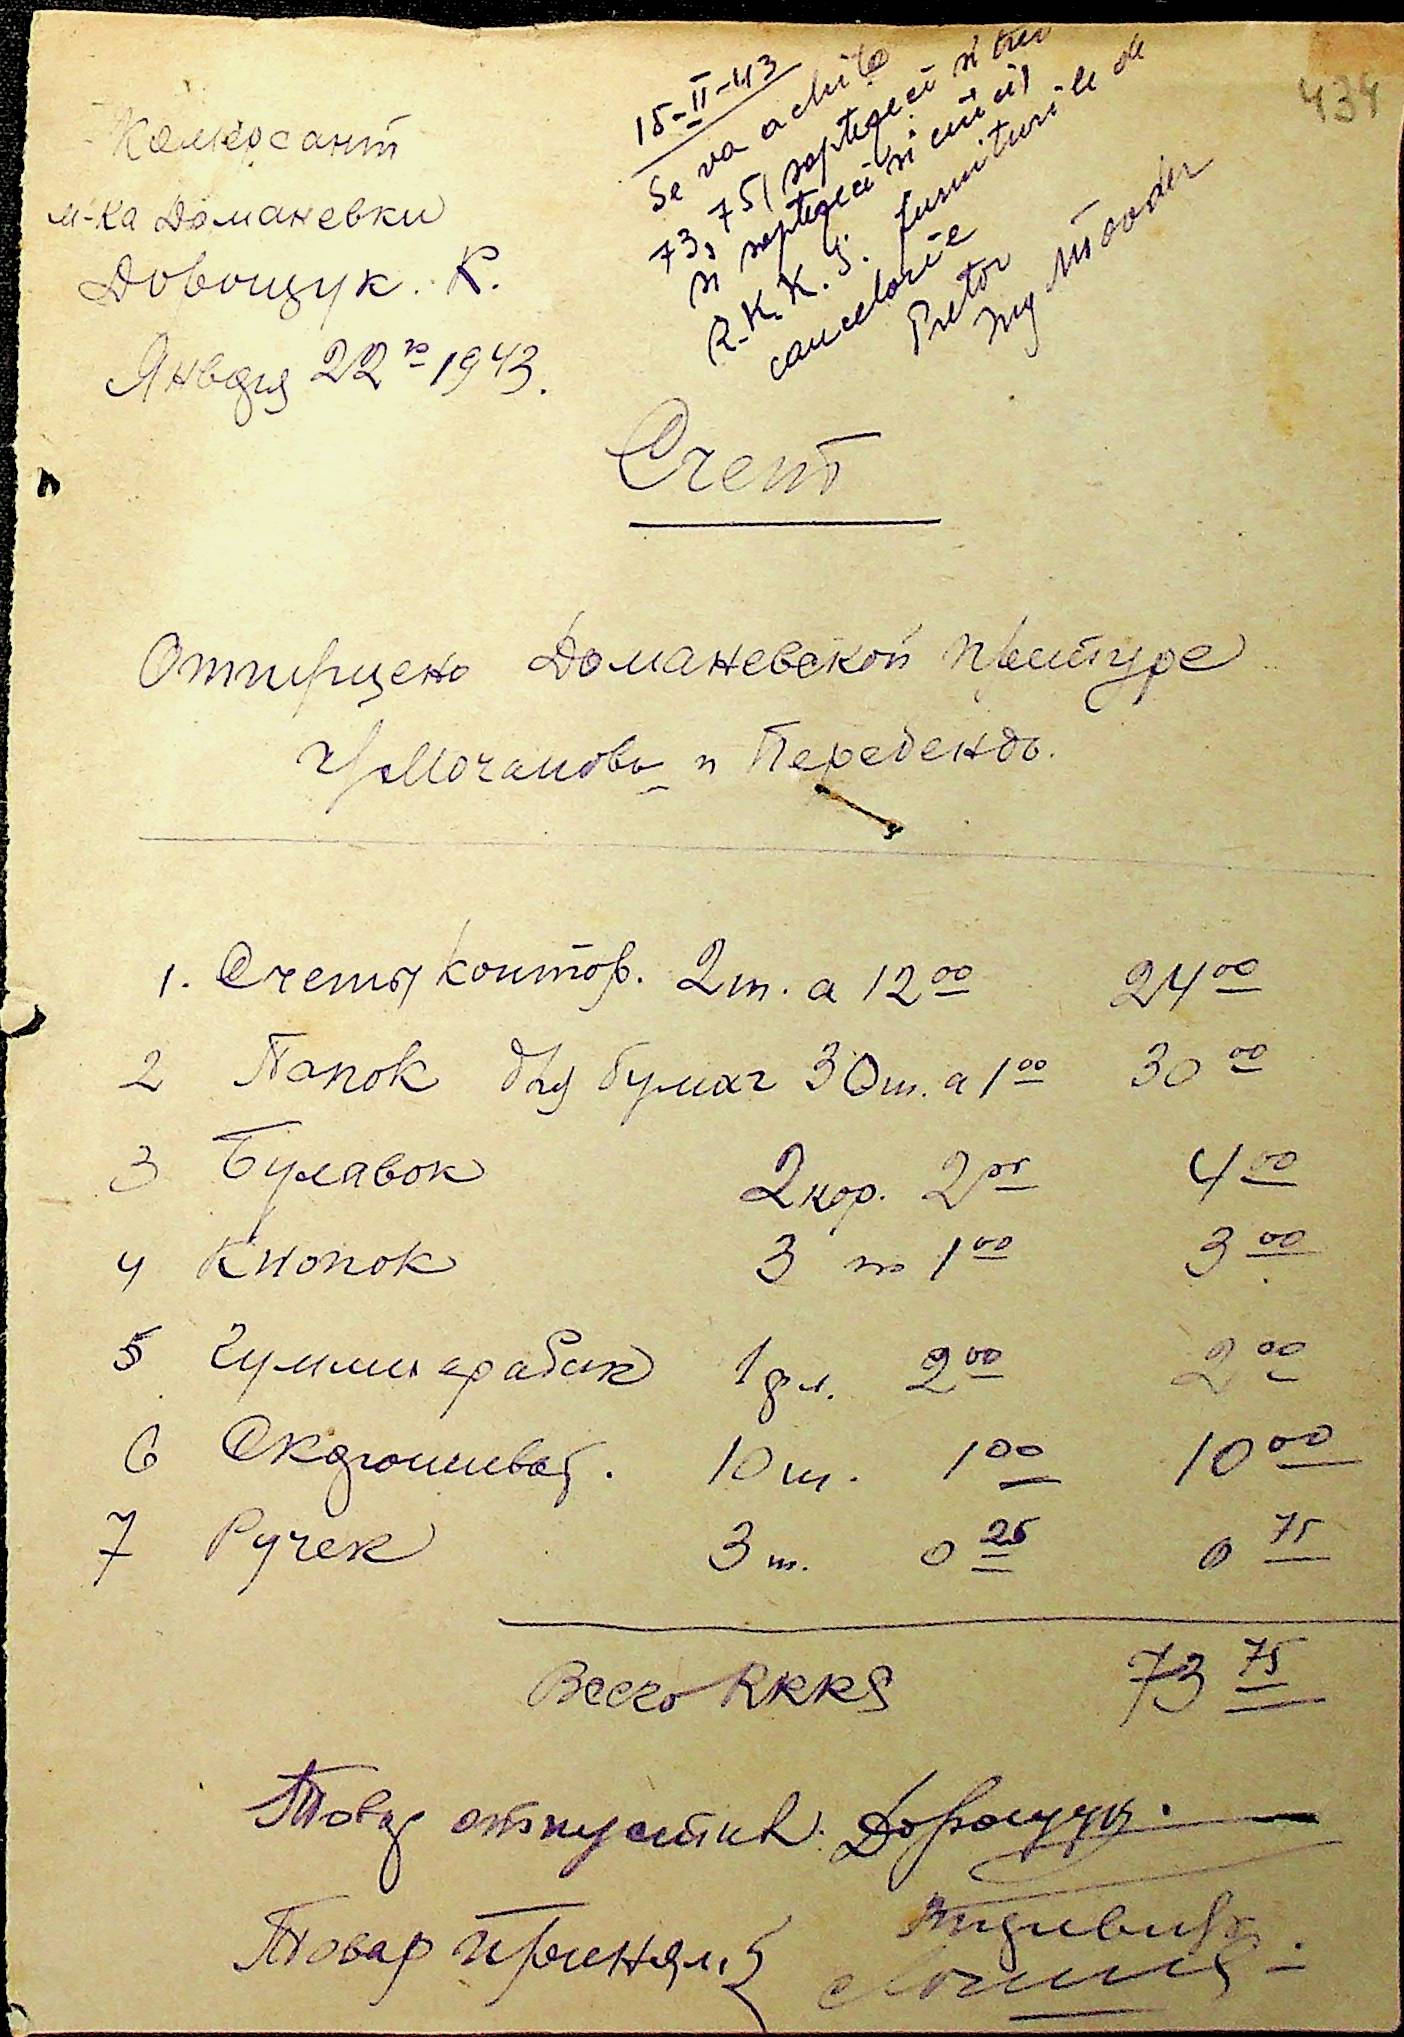 434
Коммерсант
м-ка Доманевки
Довощук. К.
Января 22го 1943.
15-II-43
Se va achita
73,75 (șaptezeci și trei
și șaptezeci și cinci)
R.K.K.S. furnituri de
cancelarie
Pretor
Счет
Отпущено Доманевской претуре
и Перебендо.
1. Счеты контор. 2ш. а 12 00 24 00
2 Папок для бумаг 30ш. а 1 00 30 00
3 Булавок 2кор. 2 00 4 00
4 Кнопок 3 по 1 00 3 00
5 Гумми арабик 1фл. 2 00 2 00
6 10ш. 1 00 10 00
7 Ручек 3ш. 0 25 0 75
Всего RKKS 73 75
Товар отпустил.
Товар приняли